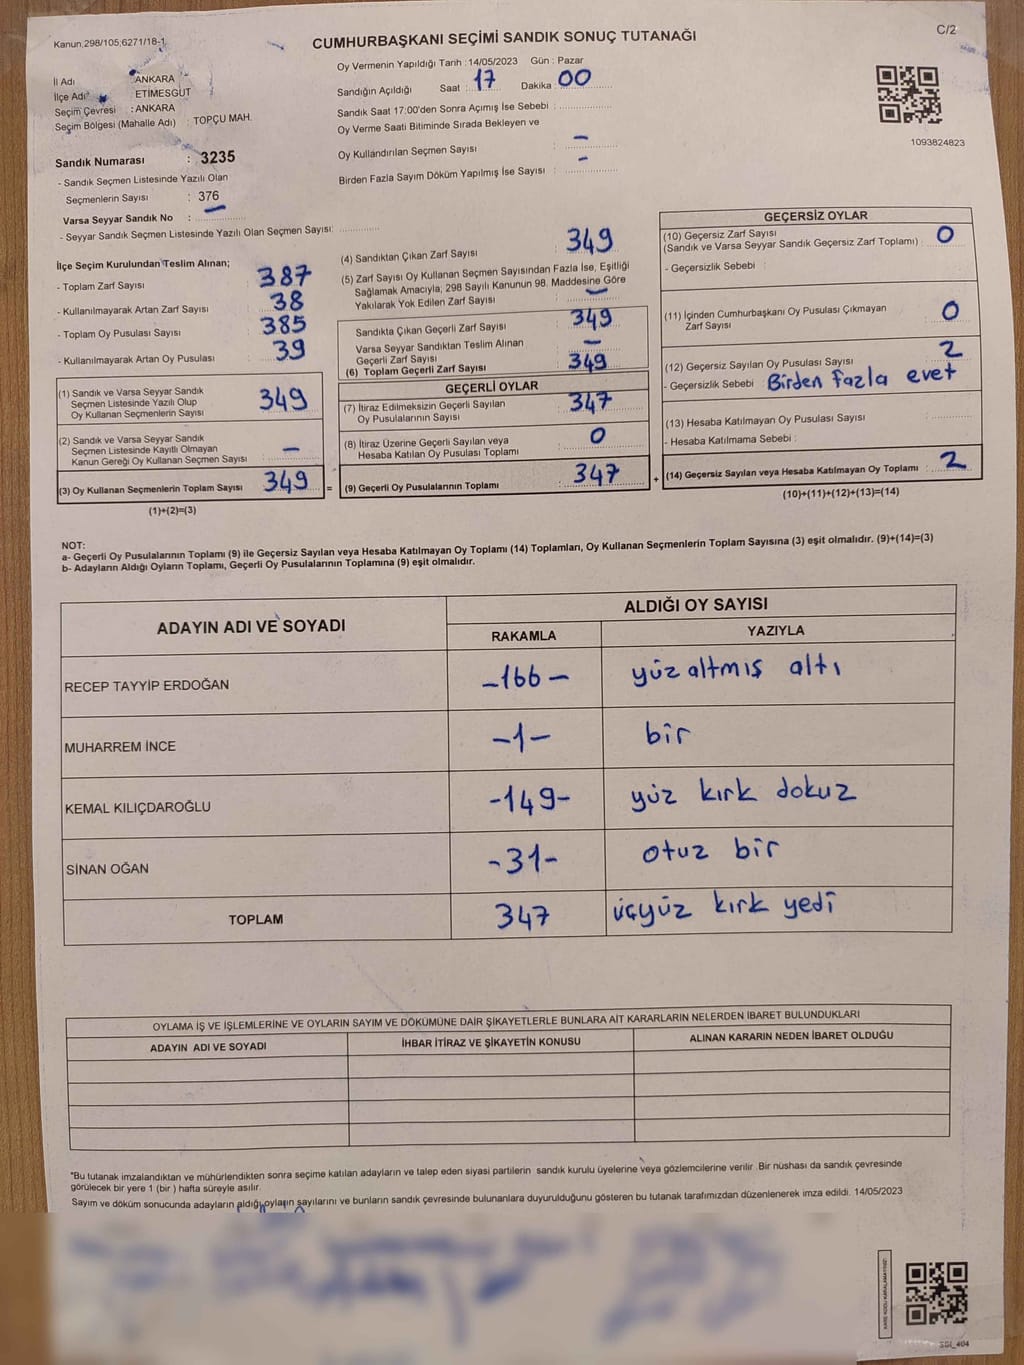 Kanun.298/105;6271/18-1
CUMHURBAŞKANI SEÇİMİ SANDIK SONUÇ TUTANAĞI
C/2
İl Adı : ANKARA
İlçe Adı : ETİMESGUT
Seçim Çevresi : ANKARA
Seçim Bölgesi (Mahalle Adı) : TOPÇU MAH.
Sandık Numarası : 3235
- Sandık Seçmen Listesinde Yazılı Olan
Seçmenlerin Sayısı : 376
Varsa Seyyar Sandık No : –
- Seyyar Sandık Seçmen Listesinde Yazılı Olan Seçmen Sayısı:
Oy Vermenin Yapıldığı Tarih : 14/05/2023 Gün : Pazar
Sandığın Açıldığı Saat : 17 Dakika : 00
Sandık Saat 17:00'den Sonra Açılmış İse Sebebi :
Oy Verme Saati Bitiminde Sırada Bekleyen ve
Oy Kullandırılan Seçmen Sayısı : –
Birden Fazla Sayım Döküm Yapılmış İse Sayısı : –
1093824823
İlçe Seçim Kurulundan Teslim Alınan;
- Toplam Zarf Sayısı : 387
- Kullanılmayarak Artan Zarf Sayısı : 38
- Toplam Oy Pusulası Sayısı : 385
- Kullanılmayarak Artan Oy Pusulası : 39
(1) Sandık ve Varsa Seyyar Sandık
Seçmen Listesinde Yazılı Olup
Oy Kullanan Seçmenlerin Sayısı : 349
(2) Sandık ve Varsa Seyyar Sandık
Seçmen Listesinde Kayıtlı Olmayan
Kanun Gereği Oy Kullanan Seçmen Sayısı : –
(3) Oy Kullanan Seçmenlerin Toplam Sayısı : 349 =
(1)+(2)=(3)
(4) Sandıktan Çıkan Zarf Sayısı : 349
(5) Zarf Sayısı Oy Kullanan Seçmen Sayısından Fazla İse, Eşitliği
Sağlamak Amacıyla; 298 Sayılı Kanunun 98. Maddesine Göre
Yakılarak Yok Edilen Zarf Sayısı : –
Sandıkta Çıkan Geçerli Zarf Sayısı : 349
Varsa Seyyar Sandıktan Teslim Alınan
Geçerli Zarf Sayısı : –
(6) Toplam Geçerli Zarf Sayısı : 349
GEÇERLİ OYLAR
(7) İtiraz Edilmeksizin Geçerli Sayılan
Oy Pusulalarının Sayısı : 347
(8) İtiraz Üzerine Geçerli Sayılan veya
Hesaba Katılan Oy Pusulası Toplamı : 0
(9) Geçerli Oy Pusulalarının Toplamı : 347 +
GEÇERSİZ OYLAR
(10) Geçersiz Zarf Sayısı
(Sandık ve Varsa Seyyar Sandık Geçersiz Zarf Toplamı) : 0
- Geçersizlik Sebebi :
(11) İçinden Cumhurbaşkanı Oy Pusulası Çıkmayan
Zarf Sayısı : 0
(12) Geçersiz Sayılan Oy Pusulası Sayısı : 2
- Geçersizlik Sebebi : Birden fazla evet
(13) Hesaba Katılmayan Oy Pusulası Sayısı :
- Hesaba Katılmama Sebebi :
(14) Geçersiz Sayılan veya Hesaba Katılmayan Oy Toplamı : 2
(10)+(11)+(12)+(13)=(14)
NOT:
a- Geçerli Oy Pusulalarının Toplamı (9) ile Geçersiz Sayılan veya Hesaba Katılmayan Oy Toplamı (14) Toplamları, Oy Kullanan Seçmenlerin Toplam Sayısına (3) eşit olmalıdır. (9)+(14)=(3)
b- Adayların Aldığı Oyların Toplamı, Geçerli Oy Pusulalarının Toplamına (9) eşit olmalıdır.
ADAYIN ADI VE SOYADI ALDIĞI OY SAYISI
RAKAMLA YAZIYLA
RECEP TAYYİP ERDOĞAN -166- yüz altmış altı
MUHARREM İNCE -1- bir
KEMAL KILIÇDAROĞLU -149- yüz kırk dokuz
SİNAN OĞAN -31- otuz bir
TOPLAM 347 üçyüz kırk yedi
OYLAMA İŞ VE İŞLEMLERİNE VE OYLARIN SAYIM VE DÖKÜMÜNE DAİR ŞİKAYETLERLE BUNLARA AİT KARARLARIN NELERDEN İBARET BULUNDUKLARI
ADAYIN ADI VE SOYADI İHBAR İTİRAZ VE ŞİKAYETİN KONUSU ALINAN KARARIN NEDEN İBARET OLDUĞU
*Bu tutanak imzalandıktan ve mühürlendikten sonra seçime katılan adayların ve talep eden siyasi partilerin sandık kurulu üyelerine veya gözlemcilerine verilir .Bir nüshası da sandık çevresinde
görülecek bir yere 1 (bir ) hafta süreyle asılır.
Sayım ve döküm sonucunda adayların aldığı oyların sayılarını ve bunların sandık çevresinde bulunanlara duyurulduğunu gösteren bu tutanak tarafımızdan düzenlenerek imza edildi. 14/05/2023
KARE KODU KARALAMAYINIZ!